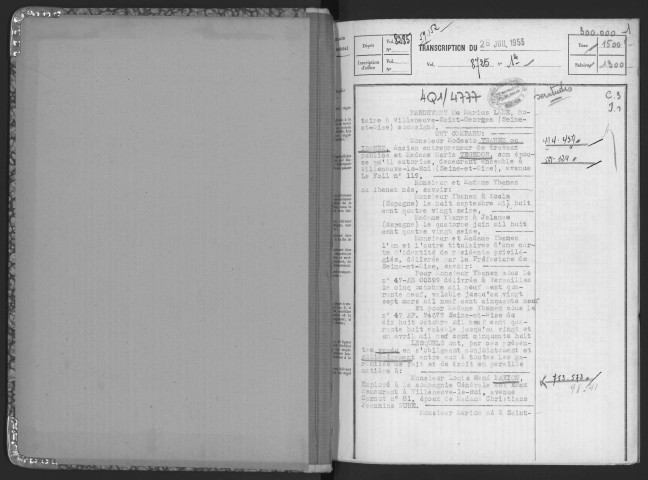 500.000 1
Dépôt
Vol. 8295
N°
TRANSCRIPTION DU 26 JUIL 1955
Taxe 1500
Inscription d'office
Vol.
N°
Vol. 8735 n° 1
Salaire 1300
4Q1/4777
C.3
PARDEVANT Me Marius LANE, No-
taire à Villeneuve-Saint-Georges (Seine-
et-Oise) soussigné,
ONT COMPARU:
Monsieur Modesto YBANEZ ou
IBANEZ, Ancien entrepreneur de travaux
publics et Madame Maria, son épou-
se qu'il autorise, demeurant ensemble à
Villeneuve-le-Roi (Seine-et-Oise), avenue
Le Foll n° 119,
Monsieur et Madame Ybanez
ou Ibanez nés, savoir:
Monsieur Ybanez à
(Espagne) le huit septembre mil huit
cent quatre vingt seize,
Madame Ybanez à
(Espagne) le quatorze juin mil huit
cent quatre vingt seize,
Monsieur et Madame Ybanez
l'un et l'autre titulaires d'une car-
te d'identité de résidents privilé-
giés, délivrée par la Préfecture de
Seine-et-Oise, savoir:
Pour Monsieur Ybanez sous le
n° 47-AB 00297 délivrée à Versailles
le cinq octobre mil neuf cent qua-
rante neuf, valable jusqu'au vingt
sept mars mil neuf cent cinquante neuf
Et pour Madame Ybanez sous le
n° 47 AF. 74277 Seine-et-Oise du
dix huit octobre mil neuf cent qua-
rante huit valable jusqu'au vingt et
un avril mil neuf cent cinquante huit
LESQUELS ont, par ces présen-
tes vendu en s'obligeant conjointement et
solidairement entre eux à toutes les ga-
ranties de fait et de droit en pareille
matière à:
Monsieur Louis René
Employé à la compagnie Générale des Eaux
demeurant à Villeneuve-le-Roi, avenue
Carnot n° 81, époux de Madame Christiane
Jeannine
Monsieur né à Saint-
753.573